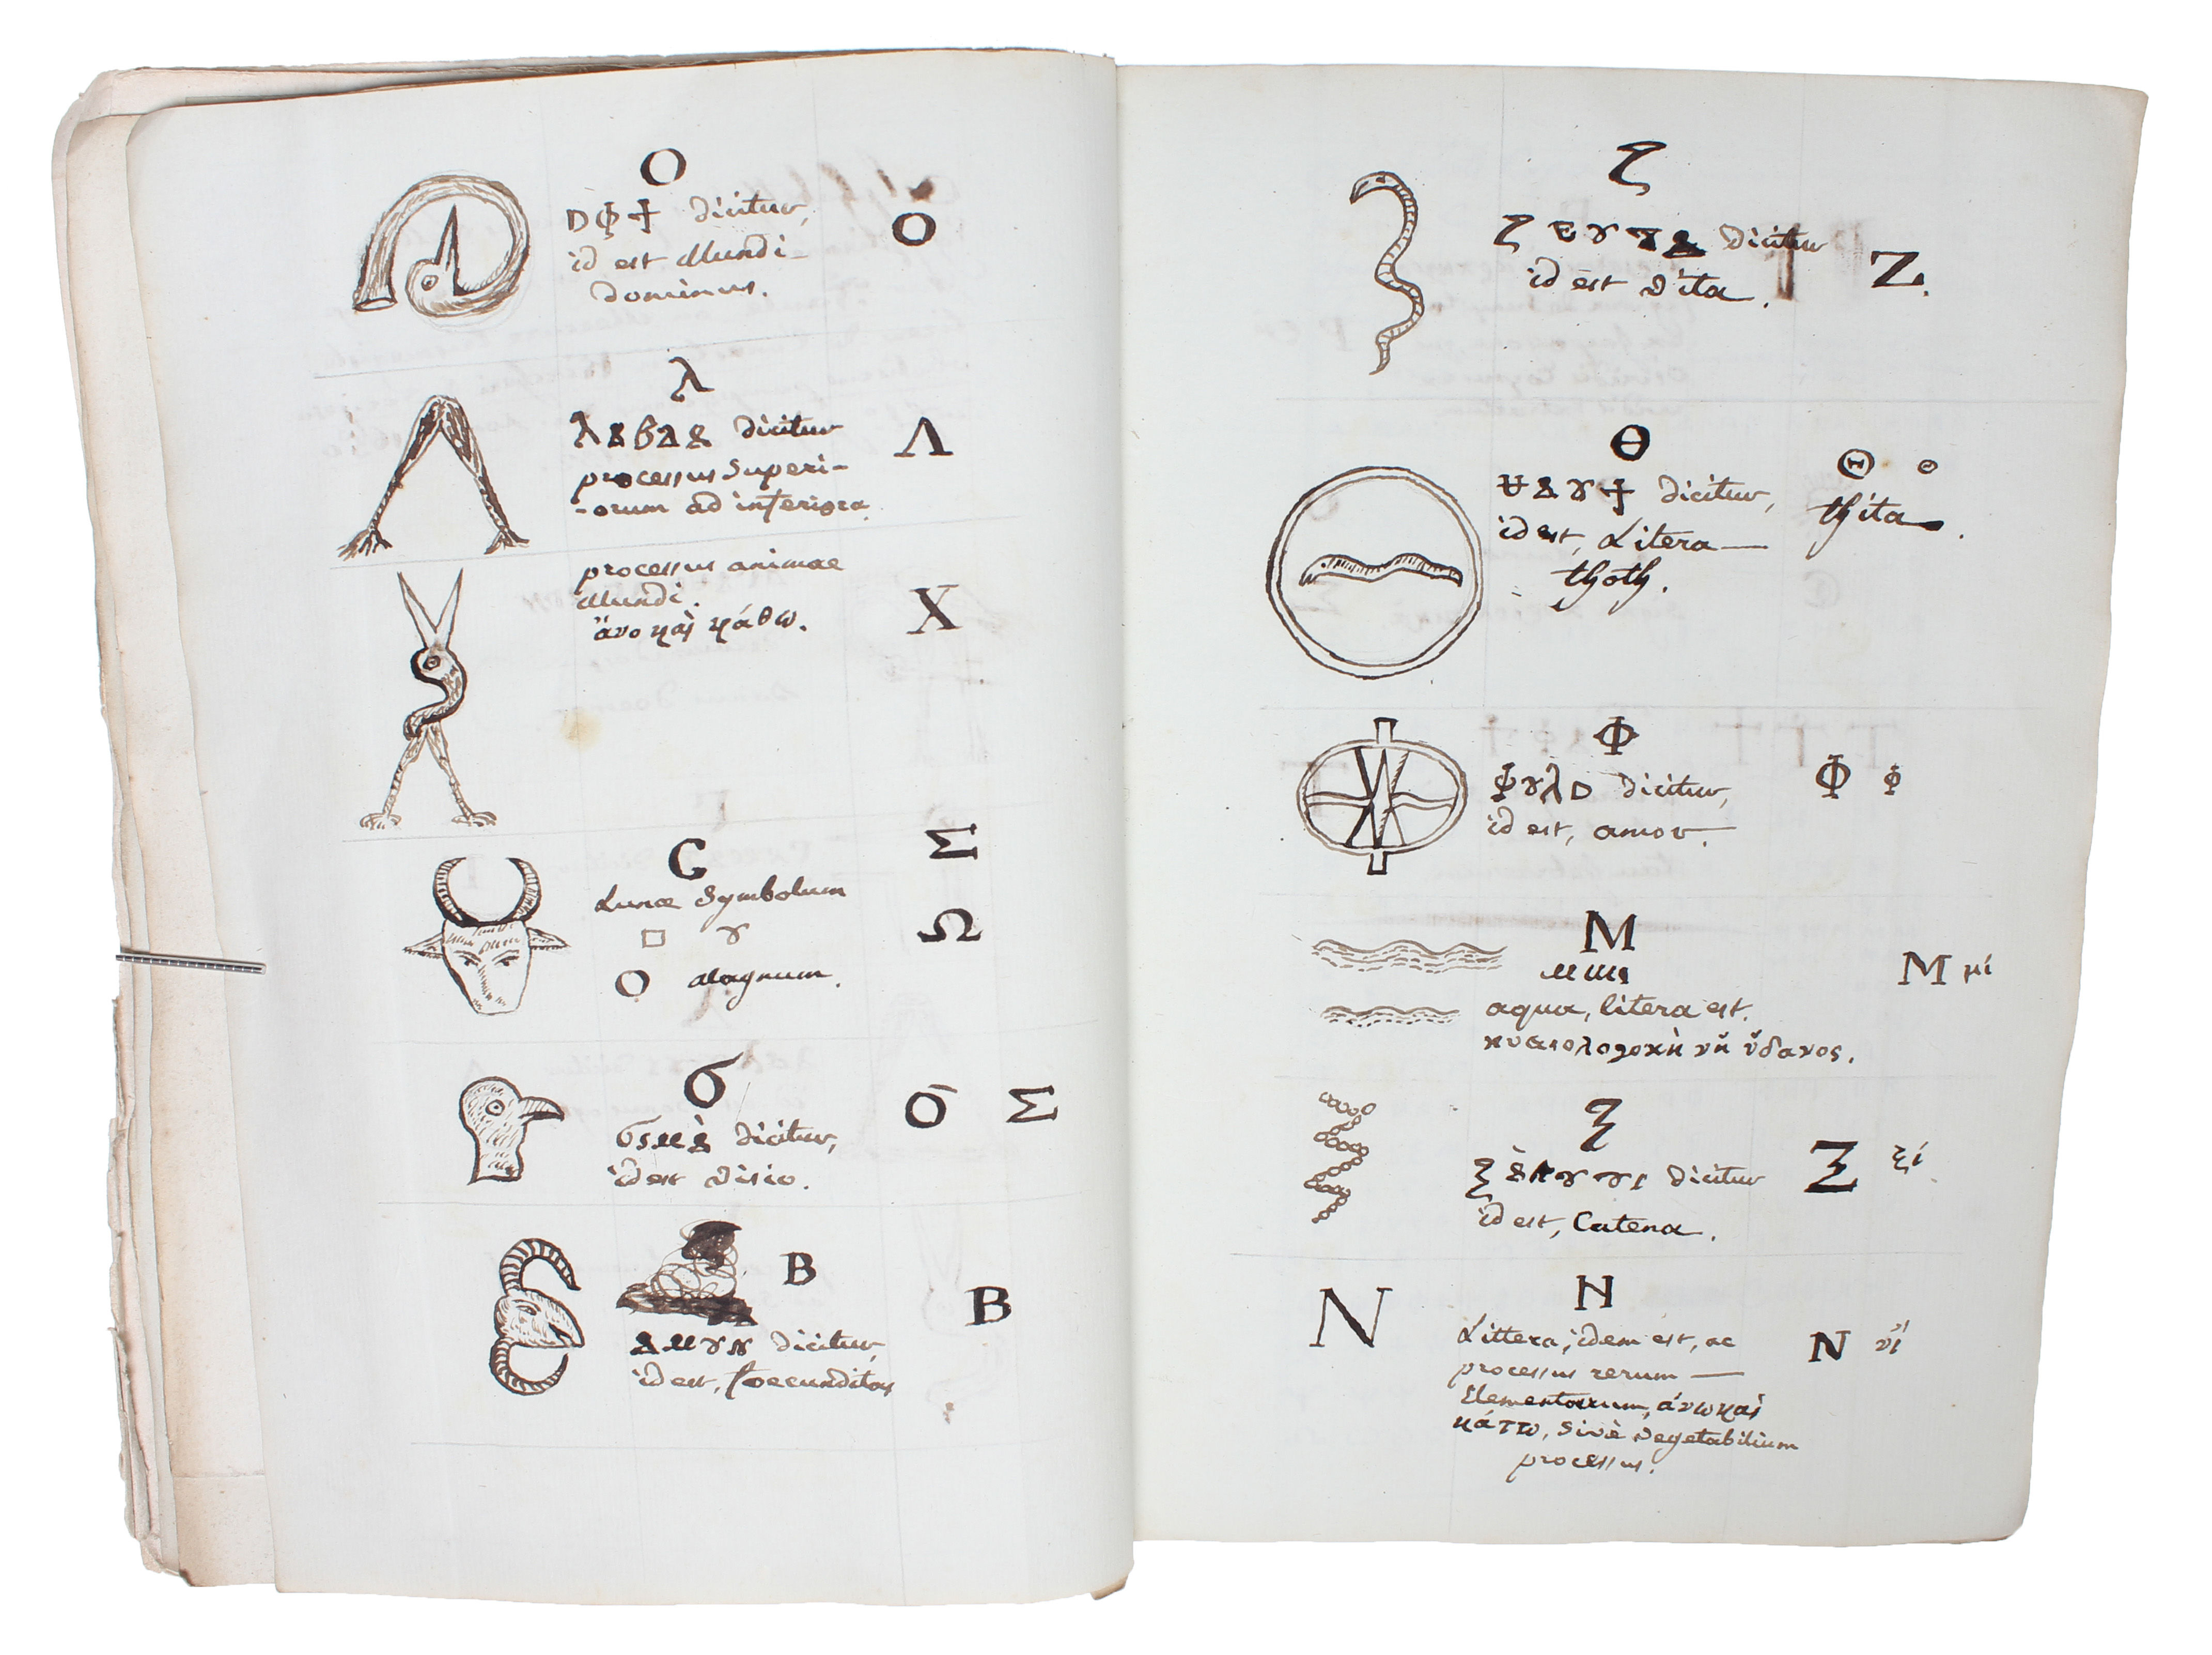 O
dicitur,
id est Mundi
Dominus.
O
λ
dicitur
processus Superi-
-orum ad inferiora
Λ
processus animae
Mundi.
ἄνο καὶ κάθω.
X
C
Lunae Symbolum
□ ȣ
O Magnum.
Σ
Ω
σ
dicitur,
id est Visio.
Σ
B
dicitur,
id est, foecunditas
B
ζ
dicitur
id est Vita.
Z.
Θ
dicitur,
id est, Litera
thoth.
Θ Θ
thita.
Φ
dicitur,
id est, amor.
Φ Φ
M
aqua, litera est.
ὕδανος.
M μί
ξ
dicitur
id est, Catena.
Ξ ξί
N
N
Littera, idem est, ac
processus rerum
Elementorum, ἄνω καὶ
κάττω, Sivè Vegetabilium
processus.
N νί